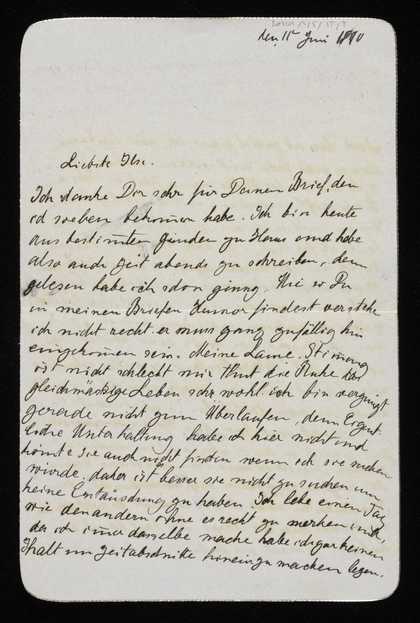 den 11t Juni 1890
Liebste Ilse.
Ich danke Dir sehr für Deinen Brief, den
ich soeben bekommen habe. Ich bin heute
aus bestimten Gründen zu Haus und habe
also auch Zeit abends zu schreiben, denn
gelesen habe ich schon genug. Wie so Du
in meinen Briefen Humor findest verstehe
ich nicht recht er muss ganz zufällig hin
eingekommen sein. Meine Laune, Stimung
ist nicht schlecht mir thut die Ruhe das
gleichmässige Leben sehr wohl ich bin vergnügt
gerade nicht zum Überlaufen, denn
Unterhaltung habe ich hier nicht und
könnte sie auch nicht finden wenn ich sie suchen
würde, daher ist besser sie nicht zu suchen um
keine Enttäuschung zu haben. Ich lebe einen Tag
wie den andern ohne es recht zu merken und
da ich immer dasselbe mache habe ich gar keinen
Halt um Zeitabschnitte hinein zu machen legen.